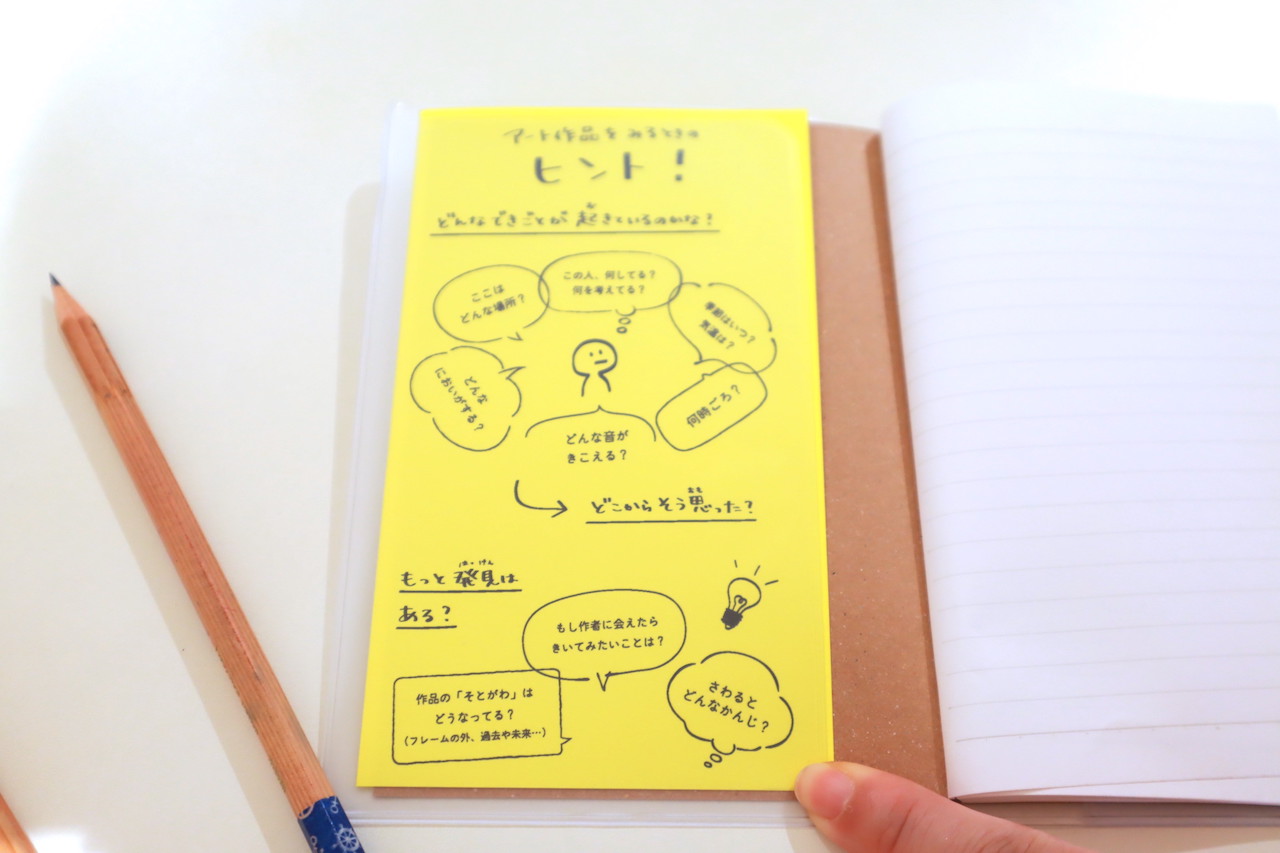 アート作品を みるときの
ヒント！
どんなできごとが 起きているのかな？
お
ここは
どんな場所？
この人、何してる？
何を考えてる？
季節はいつ？
気温は？
どんな
においがする？
何時ごろ？
どんな音が
きこえる？
どこからそう思った？
おも
もっと 発見は
はっけん
ある？
もし作者に会えたら
きいてみたいことは？
作品の「そとがわ」は
どうなってる？
（フレームの外、過去や未来…）
さわると
どんなかんじ？